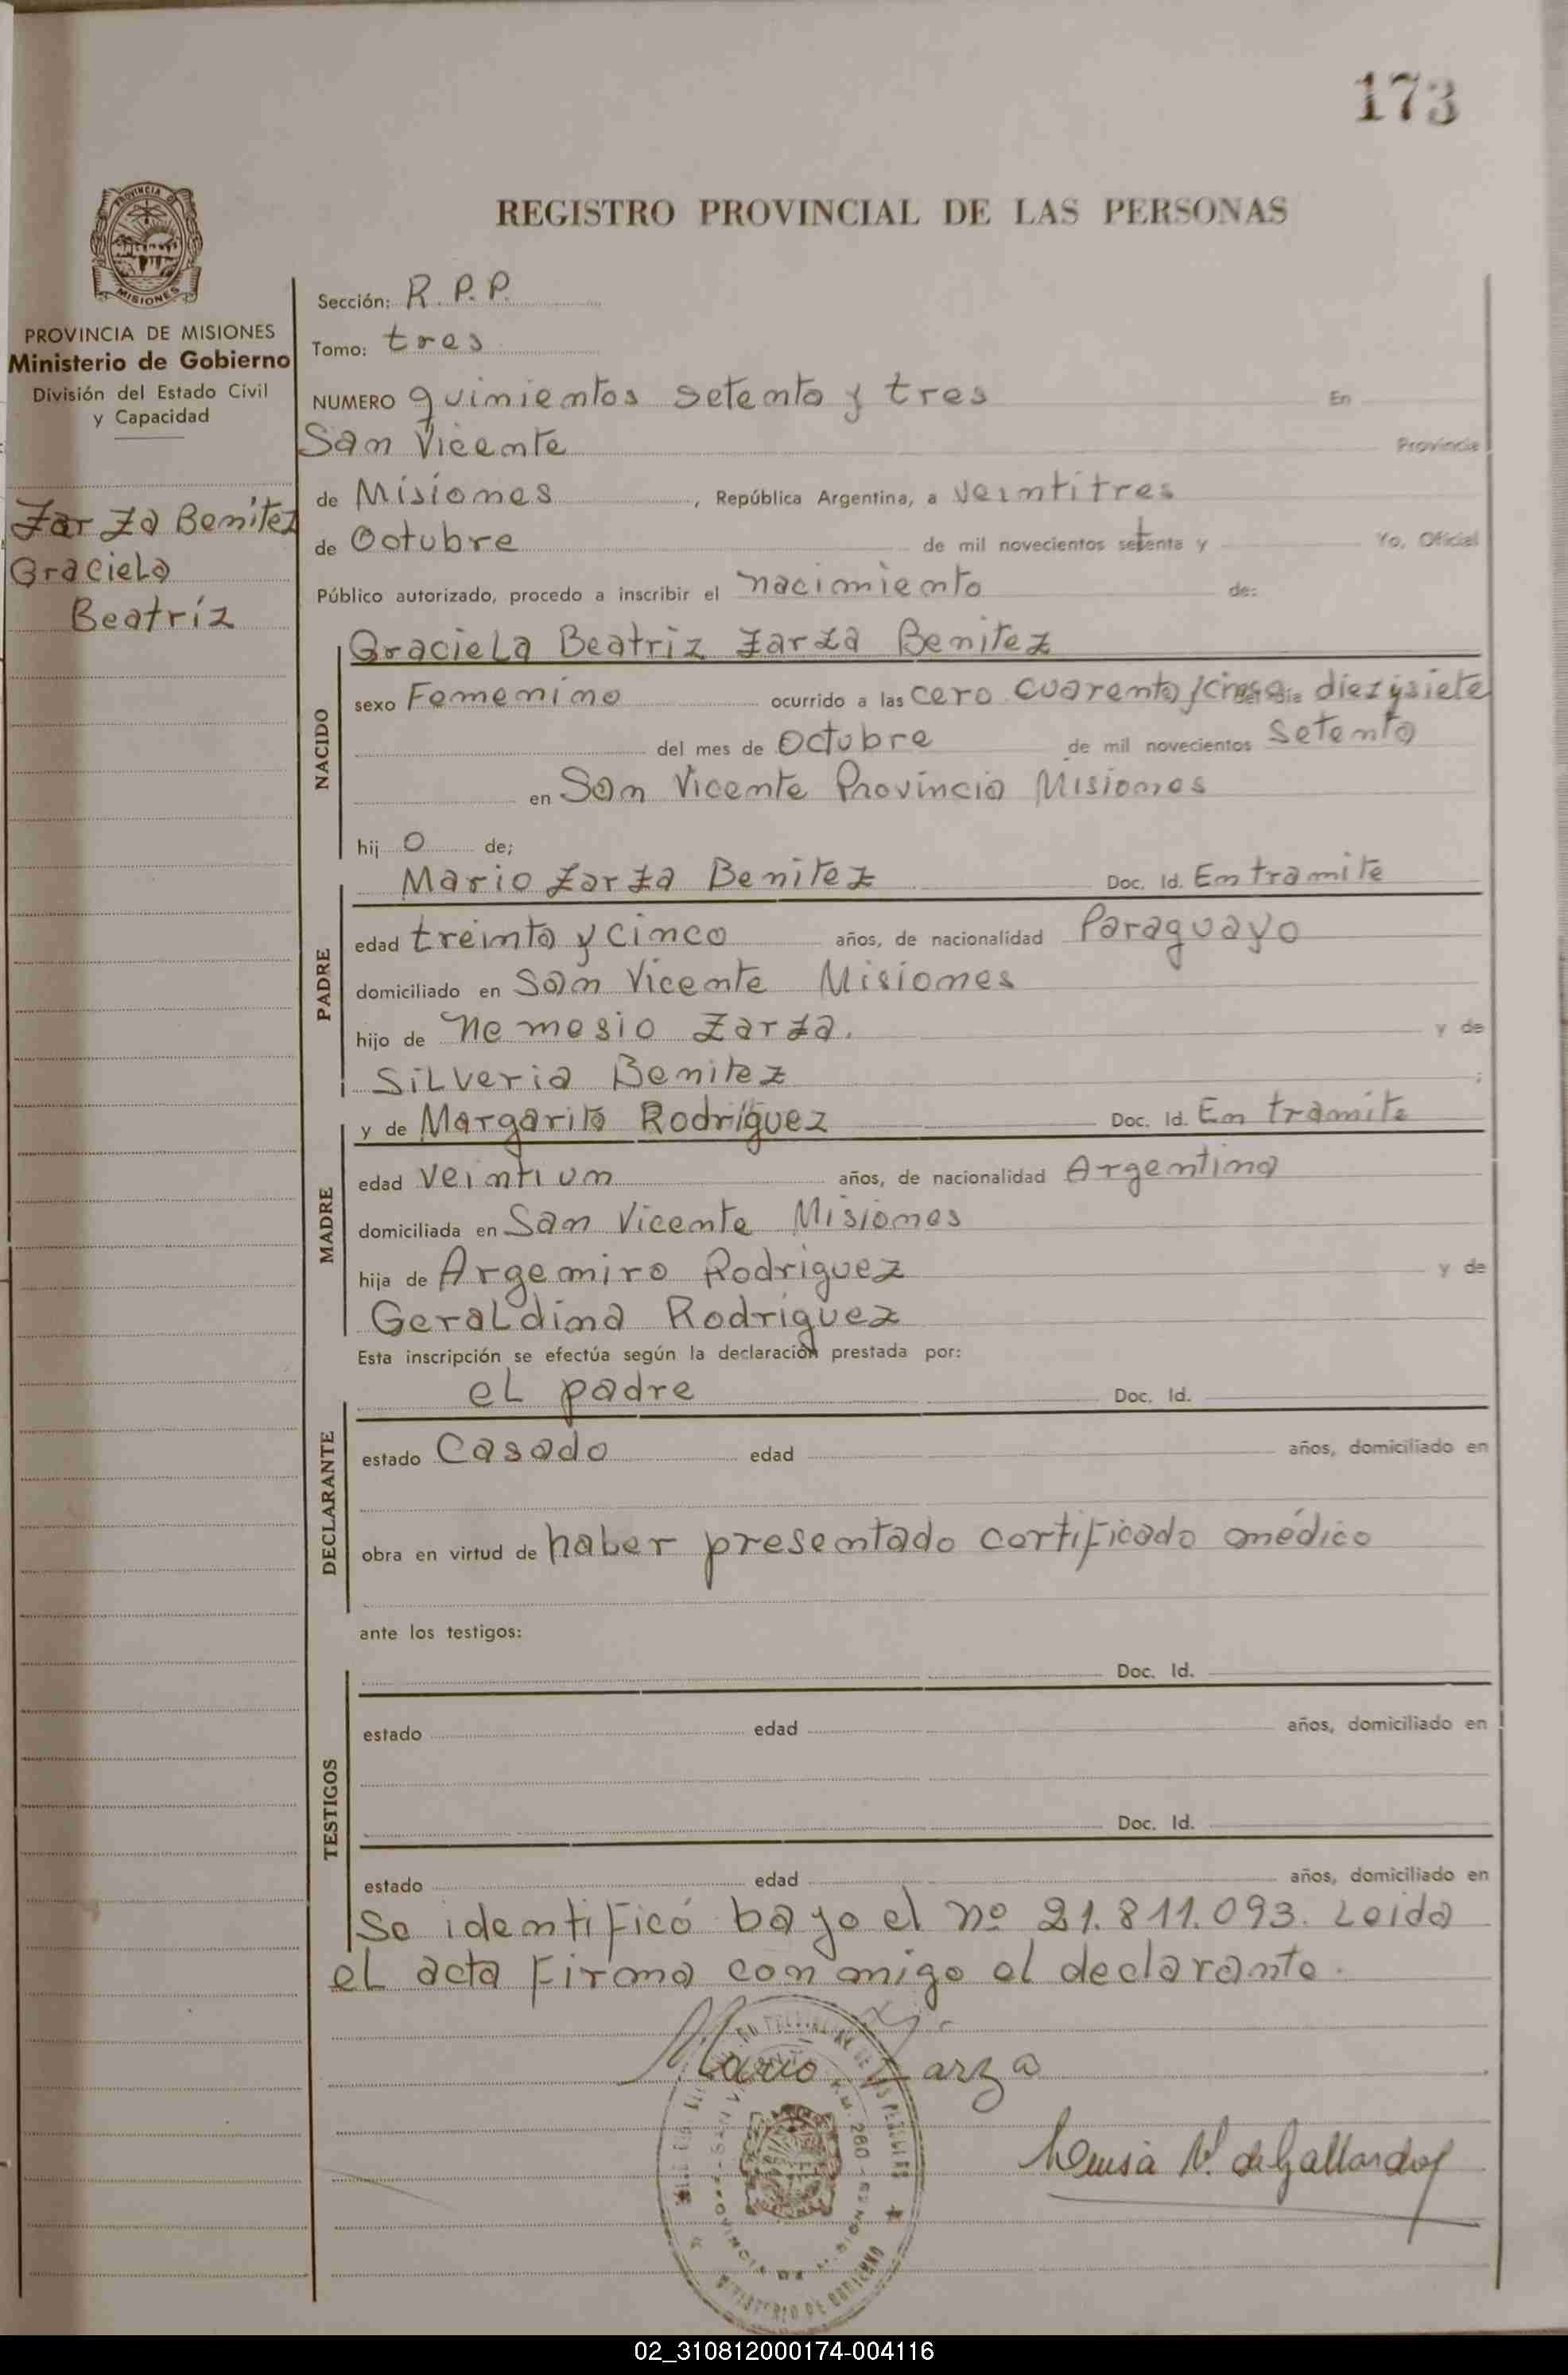 173
REGISTRO PROVINCIAL DE LAS PERSONAS
PROVINCIA DE MISIONES
Ministerio de Gobierno
División del Estado Civil
y Capacidad
Zarza Benitez
Graciela
Beatríz
Sección: R.P.P.
Tomo: tres
NUMERO quinientos setenta y tres En
San Vicente Provincia
de Misiones, República Argentina, a veintitres
de Octubre de mil novecientos setenta y Yo, Oficial
Público autorizado, procedo a inscribir el nacimiento de:
NACIDO
Graciela Beatriz Zarza Benitez
sexo Femenino ocurrido a las cero cuarenta y cinco día diez y siete
del mes de Octubre de mil novecientos setenta
en San Vicente Provincia Misiones
hij o de;
PADRE
Mario Zarza Benitez Doc. Id. En tramite
edad treinta y cinco años, de nacionalidad Paraguayo
domiciliado en San Vicente Misiones
hijo de Nemesio Zarza. y de
Silveria Benitez ;
MADRE
y de Margarita Rodríguez Doc. Id. En tramite
edad veintiun años, de nacionalidad Argentina
domiciliada en San Vicente Misiones
hija de Argemiro Rodriguez y de
Geraldina Rodriguez
Esta inscripción se efectúa según la declaración prestada por:
DECLARANTE
el padre Doc. Id.
estado Casado edad años, domiciliado en
obra en virtud de haber presentado certificado médico
ante los testigos:
TESTIGOS
Doc. Id.
estado edad años, domiciliado en
Doc. Id.
estado edad años, domiciliado en
Se identificó bajo el nº 21.811.093. Leida
el acta firma conmigo el declarante.
Mario Zarza
de Gallardo
MINISTERIO DE GOBIERNO
02_310812000174-004116